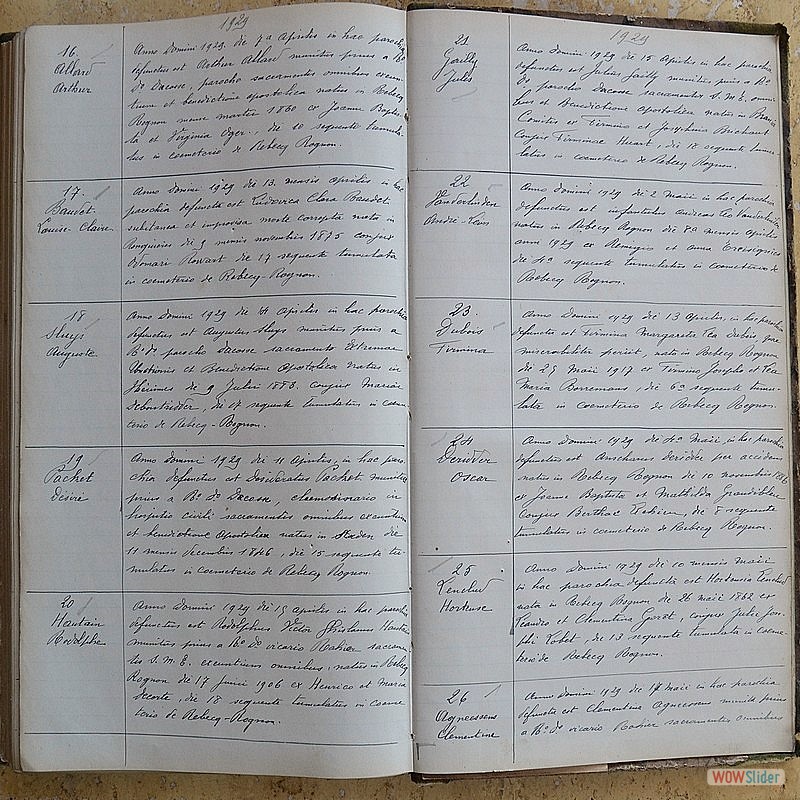 1929
16.
Allard
Arthur
Anno Domini 1929 die 7a Aprilis in hac parochia
defunctus est Arthur Allard munitus prius a R°
D° Dacosse, parocho sacramentis omnibus exeun-
tium et benedictione apostolica natus in Rebecq
Rognon mense martii 1860 ex Joanne Baptis-
ta et Virginia Oger, die 10 sequente tumula-
tus in coemeterio de Rebecq Rognon.
17.
Baudet
Louise-Claire
Anno Domini 1929 die 13 mensis aprilis in hac
parochia defuncta est Ludovica Clara Baudet
subitanea et improvisa morte correpta nata in
die 9 mensis novembris 1875 conjux
Odomari Rowart die 17 sequente tumulata
in coemeterio de Rebecq-Rognon.
18
Sluys
Auguste
Anno Domini 1929 die 4 Aprilis in hac parochia
defunctus est Augustus Sluys munitus prius a
R° D° parocho Dacosse sacramento Extremae
Unctionis et Benedictione Apostolica natus in
Hérinnes die 9 Julii 1883 conjux Mariae
die 7 sequente tumulatus in coeme-
terio de Rebecq-Rognon.
19
Pachet
Désiré
Anno Domini 1929 die 11 Aprilis, in hac paro-
chia defunctus est Desideratus Pachet munitus
prius a R° D° Dacosse, eleemosinario in
hospitio civili sacramentis omnibus exeuntium
et benedictione Apostolica natus in die
11 mensis Decembris 1846, die 15 sequente tu-
mulatus in coemeterio de Rebecq Rognon.
20
Hautain
Rodolphe
Anno Domini 1929 die 15 aprilis in hac parochia
defunctus est Rodolphus Victor Ghislanus Hautain
munitus prius a R° D° vicario Rahier sacramen-
tis S. M. E. exeuntium omnibus, natus in Rebecq
Rognon die 17 Junii 1906 ex Henrico et Maria
Decorte, die 18 sequente tumulatus in coeme-
terio de Rebecq-Rognon.
1929
21
Gailly
Jules
Anno Domini 1929 die 15 Aprilis in hac parochia
defunctus est Julius Gailly munitus prius a R°
D° parocho Dacosse sacramentis S. M. E. omni-
bus et Benedictione apostolica natus in Braine
Comitis ex Firmino et Josephina Bichaut
conjux Firminae Huart, die 18 sequente tumu-
latus in coemeterio de Rebecq Rognon.
22
Vanderlinden
André-Léon
Anno Domini 1929 die 2 Maii in hac parochia
defunctus est infantulus Andreas Leo Vanderlinden
natus in Rebecq Rognon die 8a mensis Aprilis
anni 1929 ex Remigio et Anna
die 4a sequente tumulatus in coemeterio de
Rebecq Rognon.
23.
Dubois
Firmina
Anno Domini 1929 die 13 Aprilis, in hac parochia
defuncta est Firmina Margareta Lea Dubois, quae
miserabiliter periit, nata in Rebecq Rognon
die 29 Maii 1917 ex Firmino Josepho et Lea
Maria Borremans, die 6a sequente tumu-
lata in coemeterio de Rebecq Rognon.
24
Deridder
Oscar
Anno Domini 1929 die 4a Maii, in hac parochia
defunctus est Anscharius Deridder per accidens
natus in Rebecq Rognon die 10 novembris 1886
ex Joanne Baptista et Mathilda
conjux Berthae die 8 sequente
tumulatus in coemeterio de Rebecq Rognon.
25
Hortense
Anno Domini 1929 die 10 mensis Maii
in hac parochia defuncta est Hortensia
nata in Rebecq Rognon die 26 Maii 1862 ex
Leandro et Clementina Goret, conjux Julii Jose-
phi Robet, die 13 sequente tumulata in coeme-
terio de Rebecq Rognon.
26
Agneessens
Clémentine
Anno Domini 1929 die 14 Maii in hac parochia
defuncta est Clementina Agneessens munita prius
a R° D° vicario Rahier sacramentis omnibus
WOWSlider